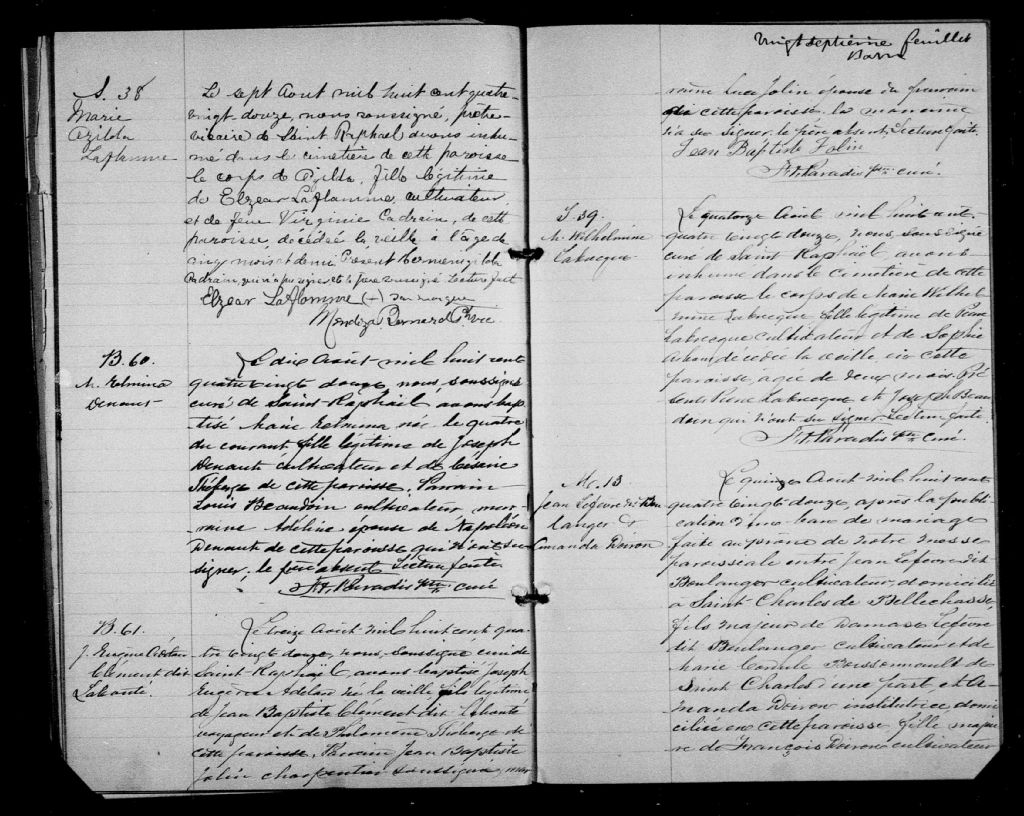 S. 38
Marie
Azilda
Laflamme
Le sept Aout mil huit cent quatre-
vingt douze, nous soussigné, prêtre-
vicaire de Saint Raphael avons inhu-
mé dans le cimetière de cette paroisse
le corps de Azilda, fille légitime
de Elzear Laflamme, cultivateur,
et de feu Virginie Cadrain, de cette
paroisse, décédée la veille à l'âge de
cinq mois et demi Présent
Cadrain, qui n'a pu signer et le père soussigné Lecture fait
Elzear Laflamme (+) sa marque
Mendoza Bernard Ptre Vic
B. 60.
M. Zelmina
Denaut
Le dix Août mil huit cent
quatre vingt douze, nous, soussigné
curé de Saint-Raphaël avons bap
tisé Marie Zelmina née le quatre
du courant fille légitime de Joseph
Denaut cultivateur et de Césaire
Théberge de cette paroisse. Parrain
Louis Beaudoin cultivateur mar
raine Adéline épouse de Napoléon
Denaut de cette paroisse qui n'ont su
signer; le père absent Lecture faite
Paradis Ptre curé
B. 61.
J. Eugène Adélar
Clément dit
Labonté.
Le treize Août mil huit cent qua
tre vingt douze, nous, soussigné curé de
Saint Raphaël, avons baptisé Joseph
Eugène Adélar né la veille, fils légitime
de Jean Baptiste Clément dit Labonté
voyageur et de Philomène Théberge de
cette paroisse, Parrain Jean Baptiste
Jolin charpentier soussigné, mar
Vingt septième feuillet
raine Luce Jolin épouse du parrain
de cette paroisse la marraine
n'a su signer, le père absent, Lecture faite,
Jean Baptiste Jolin
Paradis Ptre curé.
S 39.
M. Wilhelmine
Labrecque
Le quatorze Août mil huit cent-
quatre vingt douze, nous, soussigné
curé de Saint Raphaël, avons
inhumé dans le cimetière de cette
paroisse le corps de Marie Wilhel
mine Labrecque fille légitime de Pierre
Labrecque cultivateur et de Sophie
décédée la veille, en cette
paroisse, âgée de deux mois. Pré
sents Pierre Labrecque et Joseph Beau
doin qui n'ont su signer Lecture faite.
Paradis Ptre curé.
M. 13
Jean Lefevre dit Bou
langer &
Amanda Doiron
Le quinze Août mil huit cent
quatre vingt-douze, après la publi
cation d'un ban de mariage
faite au prône de notre messe
paroissiale entre Jean Lefevre dit
Boulanger cultivateur, domicilié
à Saint-Charles de Bellechasse,
fils majeur de Damase Lefevre
dit Boulanger cultivateur et de
Marie Boissonnault de
Saint Charles d'une part, et A-
manda Doiron institutrice, domi
ciliée en cette paroisse, fille majeu
re de François Doiron cultivateur